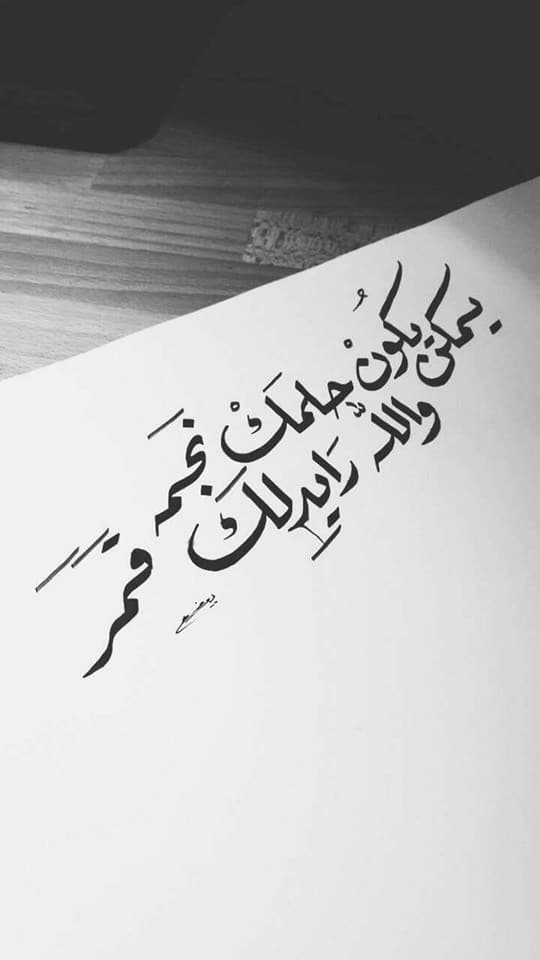 يمكن يكُونْ حلمَكْ نَجمه
واللّه رَايدلَك قَمَر